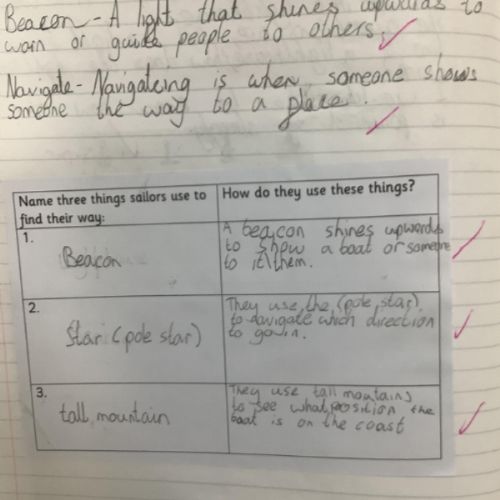 Beacon - A light that shines upwards to
warn or guide people to others.
Navigate - Navigateing is when someone shows
someone the way to a place.
Name three things sailors use to
find their way:
How do they use these things?
1.
Beacon
A beacon shines upwards
to show a boat or someone
to it\them.
2.
Star (pole star)
They use the (pole star)
to navigate which direction
to go in.
3.
tall mountain
They use tall moutains
to see what position the
boat is on the coast